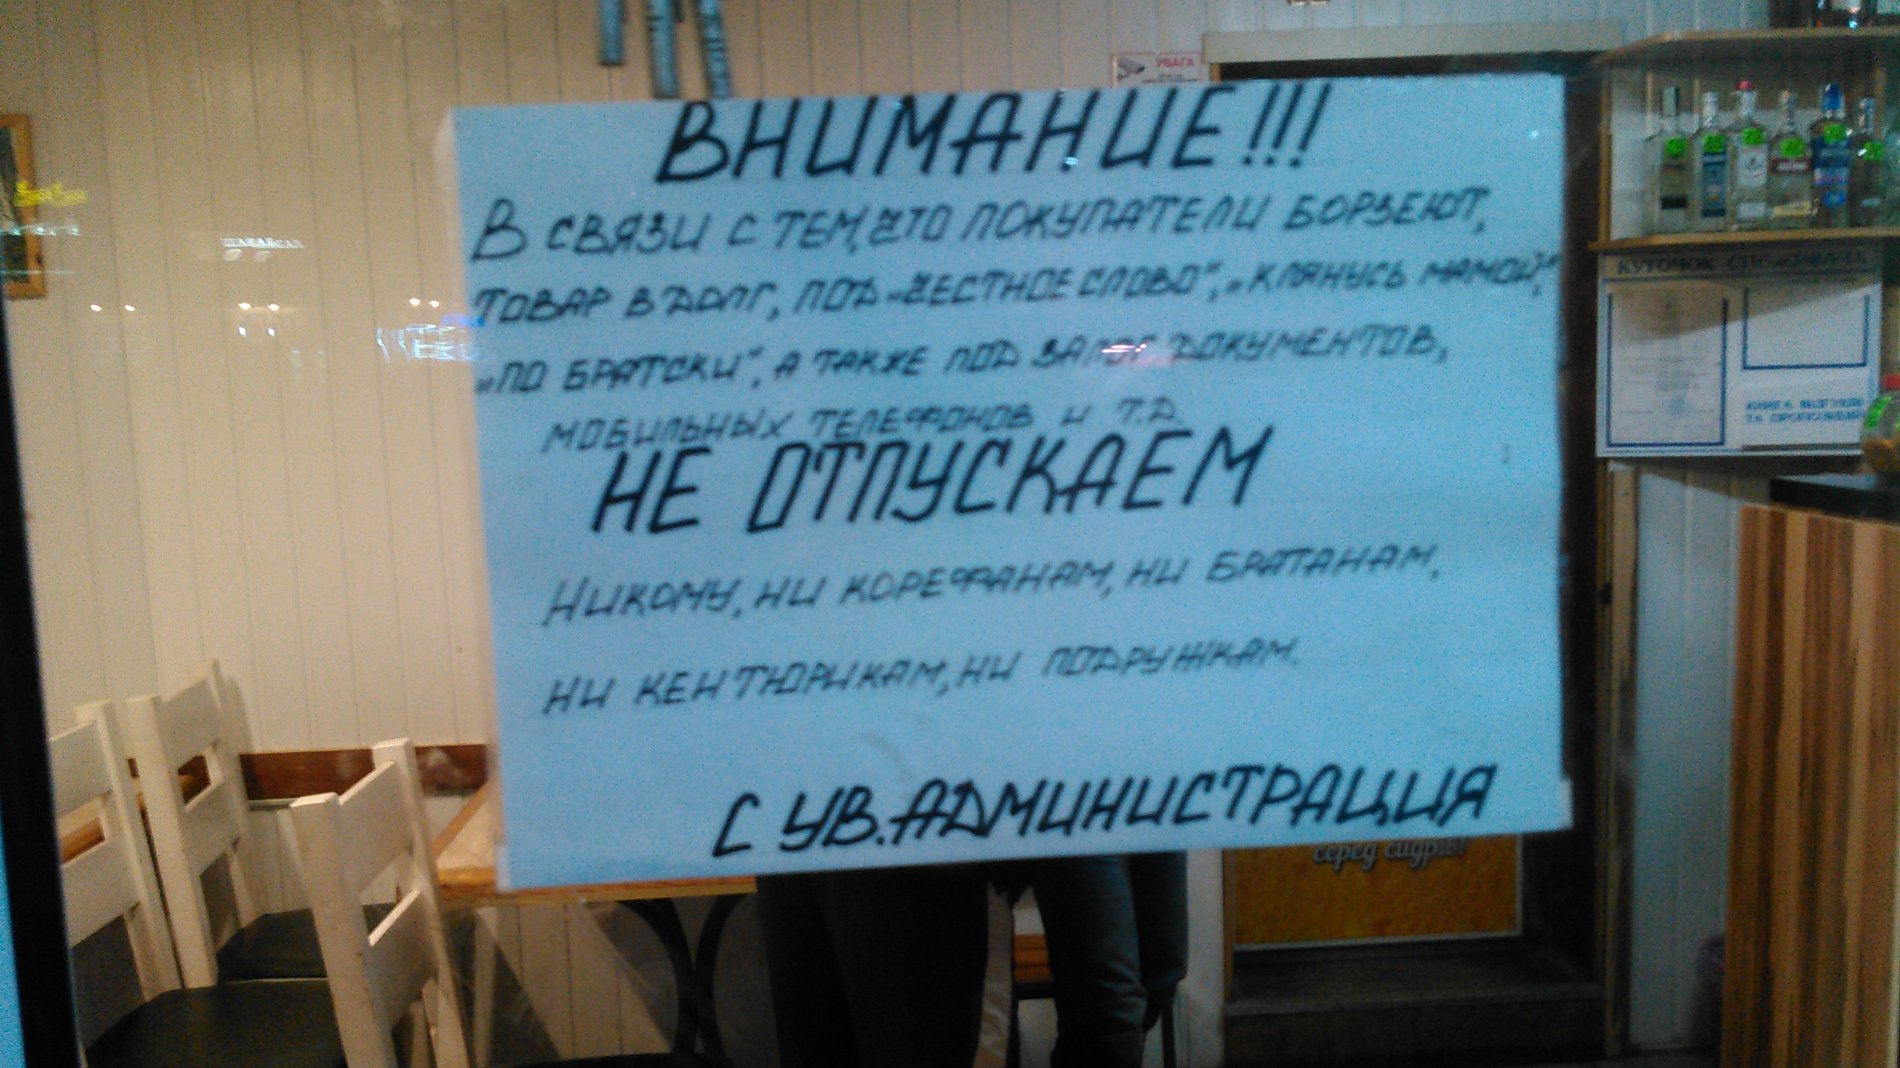 УВАГА
ВНИМАНИЕ!!!
В СВЯЗИ С ТЕМ, ЧТО ПОКУПАТЕЛИ БОРЗЕЮТ,
ТОВАР В ДОЛГ, ПОД „ЧЕСТНОЕ СЛОВО“, „КЛЯНУСЬ МАМОЙ“,
„ПО БРАТСКИ“, А ТАКЖЕ ПОД ЗАЛОГ ДОКУМЕНТОВ,
МОБИЛЬНЫХ ТЕЛЕФОНОВ И Т.Д.
НЕ ОТПУСКАЕМ
НИКОМУ, НИ КОРЕФАНАМ, НИ БРАТАНАМ,
НИ КЕНТЮРИКАМ, НИ ПОДРУЖКАМ.
С УВ. АДМИНИСТРАЦИЯ
КУТОЧОК СПОЖИВАЧА
КНИГА ВІДГУКІВ
ТА ПРОПОЗИЦІЙ
серед